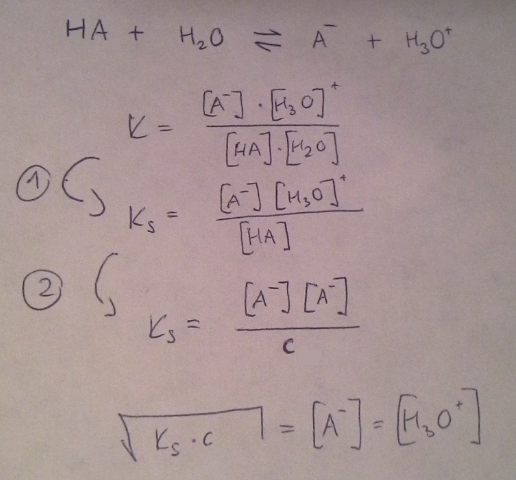 HA + H₂O ⇌ A⁻ + H₃O⁺
K = [A⁻] · [H₃O]⁺ / [HA] · [H₂O]
① Kₛ = [A⁻] [H₃O]⁺ / [HA]
② Kₛ = [A⁻] [A⁻] / c
√(Kₛ · c) = [A⁻] = [H₃O⁺]